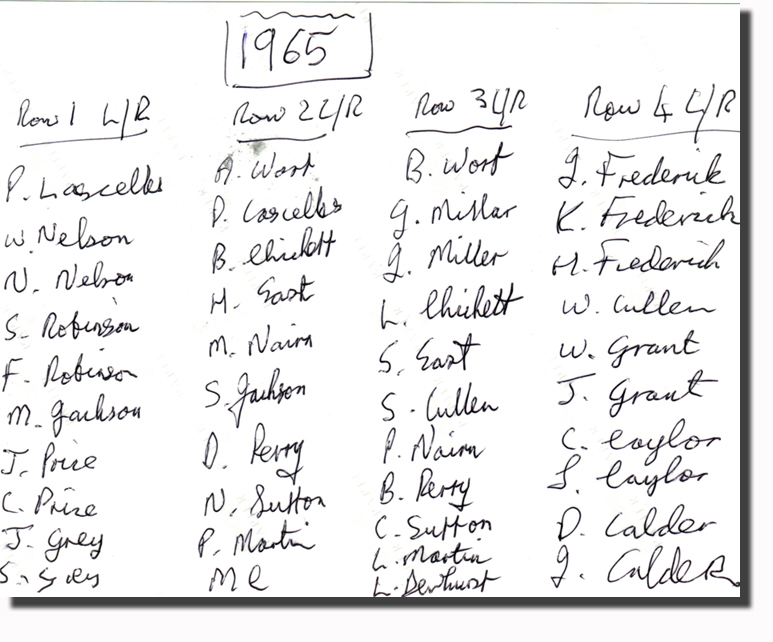 1965
Row 1 L/R
P. Lascelles
W. Nelson
N. Nelson
S. Robinson
F. Robinson
M. Jackson
J. Price
C. Price
J. Grey
S. Grey
Row 2 L/R
A. Wort
D. Lascelles
B. Chickett
H. East
M. Nairn
S. Jackson
D. Perry
N. Sutton
P. Martin
Me
Row 3 L/R
B. Wort
G. Millar
J. Miller
L. Chickett
S. East
S. Cullen
P. Nairn
B. Perry
C. Sutton
L. Martin
L. Dewhurst
Row 4 L/R
J. Frederick
K. Frederick
H. Frederick
W. Cullen
W. Grant
J. Grant
C. Caylor
S. Caylor
D. Calder
J. Calder